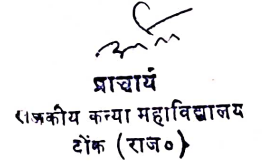 प्राचार्य
राजकीय कन्या महाविद्यालय
टोंक (राज०)